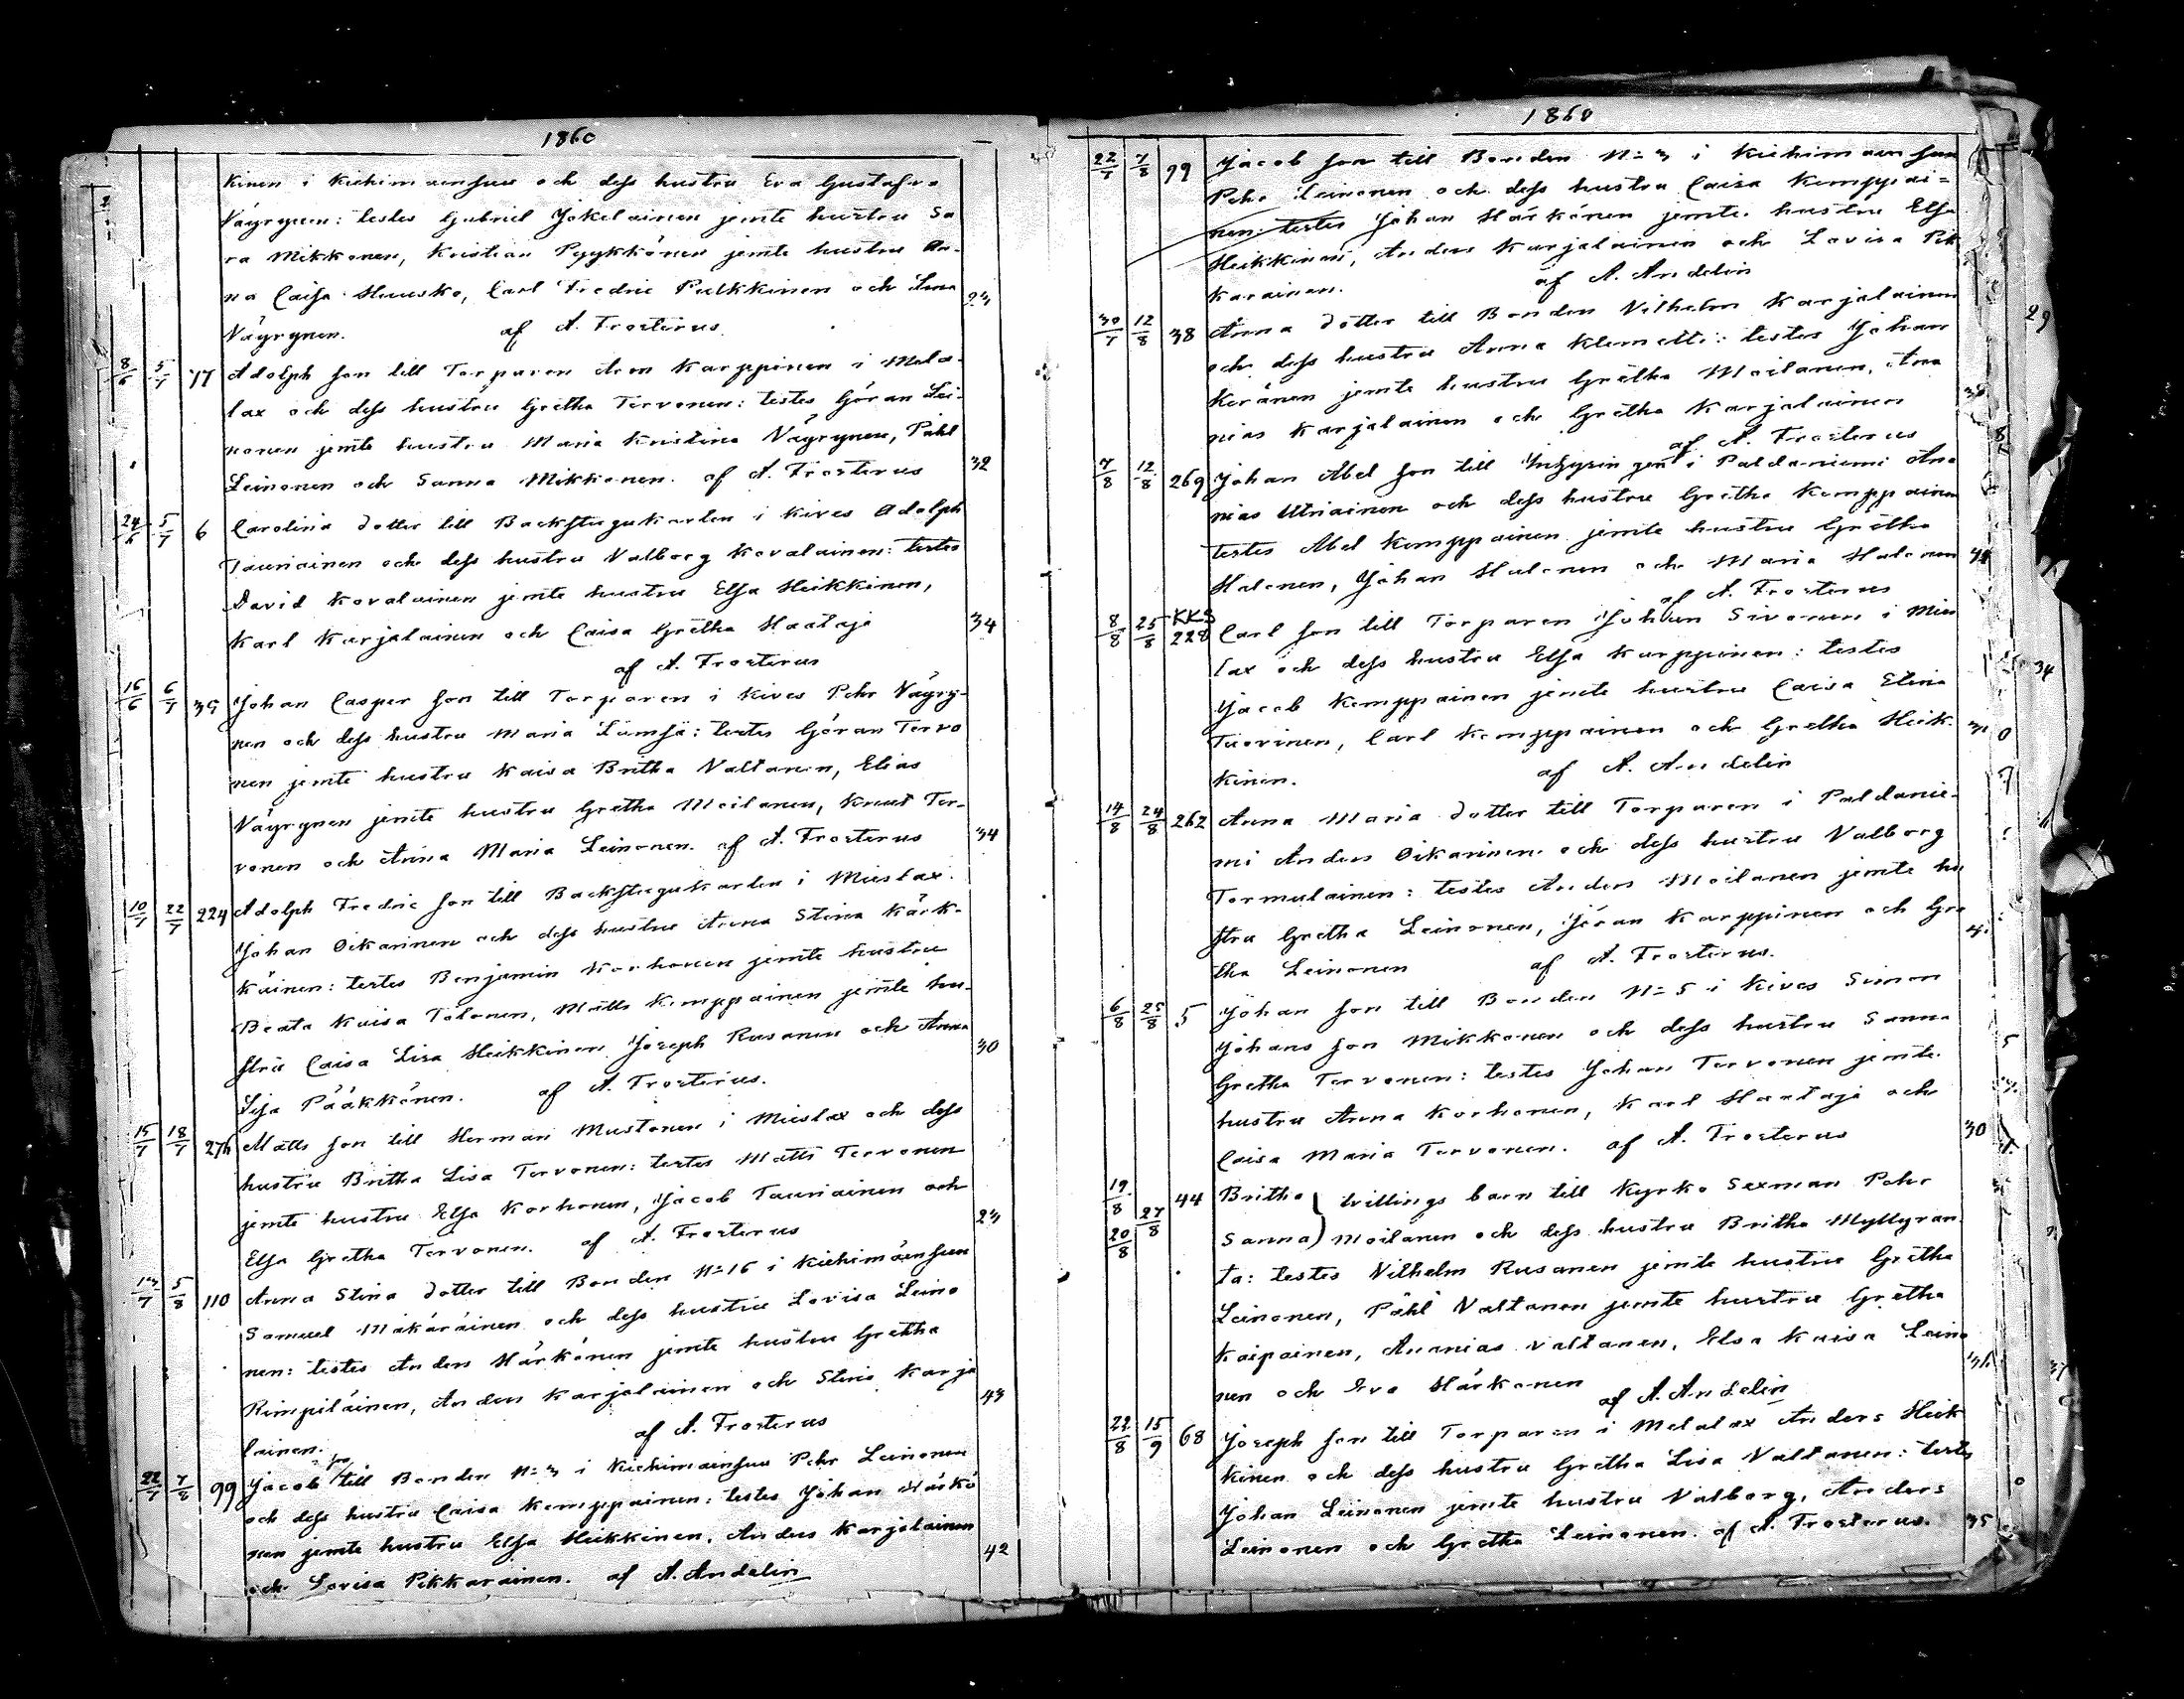 1860
kinen i Kiehimäensuu och dess hustru Eva Gustafva
Väyrynen: testes Gabriel Jokelainen jemte hustru Sa
ra Mikkonen, Kristian Pyykkönen jemte hustru An-
na Caisa Huusko, Carl Fredric Pulkkinen och Lena 23
Väyrynen. af A. Frosterus.
8/6 5/7 77 Adolph son till Torparen Aron Karppinen i Mela-
lax och dess hustru Gretha Tervonen: testes Göran Lei-
nonen jemte hustru Maria Kristina Väyrynen, Påhl
Leinonen och Sanna Mikkonen. af A. Frosterus 32
24/6 5/7 6 Carolina dotter till Backstugukarlen i Kives Adolph
Tauriainen och dess hustru Valborg Kovalainen: testes
David Kovalainen jemte hustru Elsa Heikkinen,
Karl Karjalainen och Caisa Gretha Haataja 34
af A. Frosterus
16/6 6/7 35 Johan Casper son till Torparen i Kives Pehr Väyry-
nen och dess hustru Maria Lämsä: testes Göran Tervo
nen jemte hustru Kaisa Britha Valtanen, Elias
Väyrynen jemte hustru Gretha Moilanen, Knut Ter-
vonen och Anna Maria Leinonen. af A. Frosterus 34
10/7 22/7 224 Adolph Fredric son till Backstugukarlen i Mieslax.
Johan Oikarinen och dess hustru Anna Stina Kärk-
käinen: testes Benjamin Korhonen jemte hustru
Beata Kaisa Tolonen, Matts Kemppainen jemte hu-
stru Caisa Lisa Heikkinen Joseph Rusanen och Anna 30
Lisa Pääkkönen. af A. Frosterus.
15/7 18/7 276 Matts son till Herman Mustonen i Mieslax och dess
hustru Britha Lisa Tervonen: testes Matts Tervonen
jemte hustru Elsa Korhonen, Jacob Tauriainen och 23
Elsa Gretha Tervonen. af A. Frosterus
13/7 5/8 110 Anna Stina dotter till Bonden N=16 i Kiehimäensuu
Samuel Mäkäräinen och dess hustru Lovisa Leino
nen: testes Anders Härkönen jemte hustru Gretha
Rimpiläinen, Anders Karjalainen och Stina Karja 43
lainen. af A. Frosterus
22/7 7/8 99 Jacob son till Bonden N=3 i Kiehimäinsuu Pehr Leinonen
och dess hustru Caisa Kemppainen: testes Johan Härkö
nen jemte hustru Elsa Heikkinen, Anders Karjalainen
och Lovisa Pikkarainen. af A. Andelin 42
1860
22/7 7/8 99 Jacob son till Bonden N=3 i Kiehimäensuu
Pehr Leinonen och dess hustru Caisa Kemppai=
nen: testes Johan Härkönen jemte hustru Elsa
Heikkinen, Anders Karjalainen och Lovisa Pik
karainen. af A. Andelin
30/7 12/8 38 Anna dotter till Bonden Vilhelm Karjalainen 29
och dess hustru Anna Klemetti: testes Johan
Keränen jemte hustru Gretha Moilanen, Ana
nias Karjalainen och Gretha Karjalainen
af A. Frosterus
7/8 12/8 269 Johan Abel son till Inhysingen i Paldaniemi Ana
nias Utriainen och dess hustru Gretha Kemppainen
testes Abel Kemppainen jemte hustru Gretha
Halonen, Johan Halonen och Maria Halonen
af A. Frosterus
KKS
8/8 25/8 228 Carl son till Torparen Johan Sivonen i Mies
lax och dess hustru Elsa Karppinen: testes 34
Jacob Kemppainen jemte hustru Caisa Elina
Tuovinen, Carl Kemppainen och Gretha Heik-
kinen. af A. Andelin
14/8 24/8 262 Anna Maria dotter till Torparen i Paldanie-
mi Anders Oikarinen och dess hustru Valborg
Tormulainen: testes Anders Moilanen jemte hu
stru Gretha Leinonen, Jöran Karppinen och Gre
tha Leinonen af A. Frosterus.
6/8 25/8 5 Johan son till Bonden N=5 i Kives Simon
Johans son Mikkonen och dess hustru Sanna
Gretha Tervonen: testes Johan Tervonen jemte
hustru Anna Korhonen, Karl Haataja och
Caisa Maria Tervonen. af A. Frosterus 30
19/8 27/8 44 Britha } tvillings barn till Kyrko Sexman Pehr
20/8 Sanna } Moilanen och dess hustru Britha Myllyran
ta: testes Vilhelm Rusanen jemte hustru Gretha
Leinonen, Påhl Valtanen jemte hustru Gretha
Kaipainen, Ananias Valtanen, Elsa Kaisa Leino
nen och Eva Härkonen
af A. Andelin
22/8 15/9 68 Joseph son till Torparen i Melalax Anders Heik
kinen och dess hustru Gretha Lisa Valtanen: testes
Johan Leinonen jemte hustru Valborg, Anders
Leinonen och Gretha Leinonen. af A. Frosterus. 35